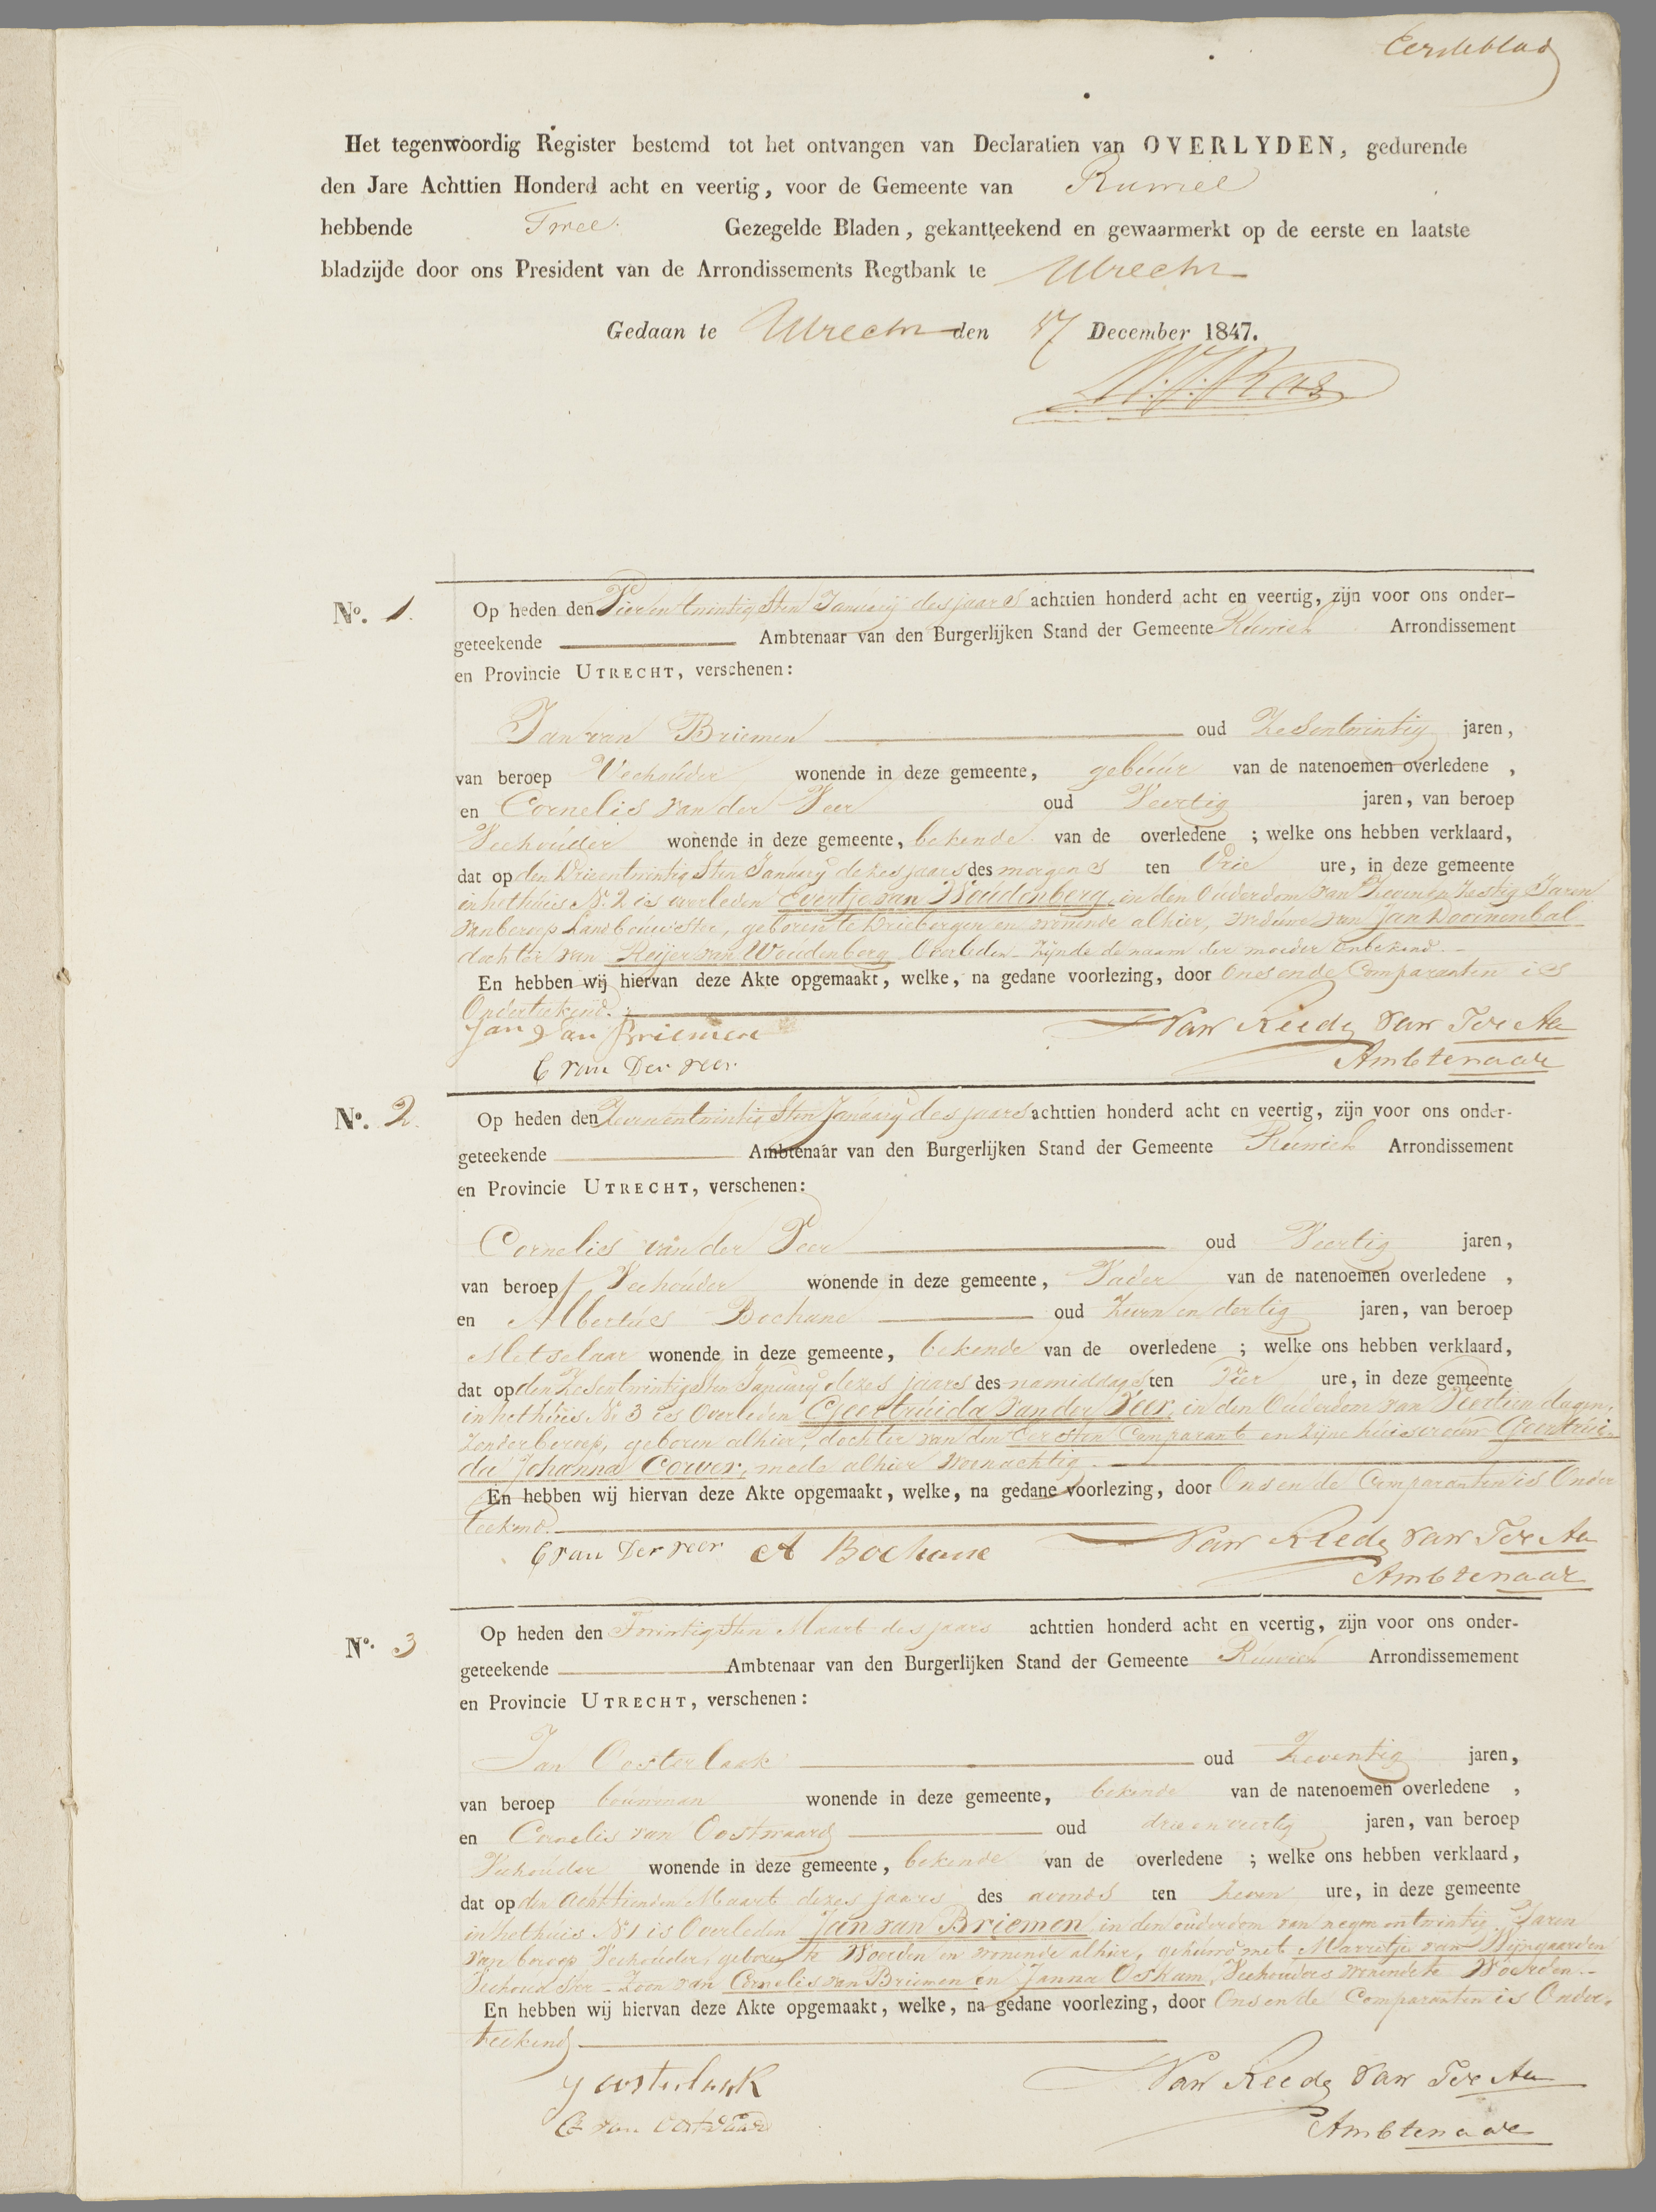 Eersteblad
Het tegenwoordig Register bestemd tot het ontvangen van Declaratien van OVERLYDEN, gedurende
den Jare Achttien Honderd acht en veertig, voor de Gemeente van
hebbende Twee Gezegelde Bladen, gekantteekend en gewaarmerkt op de eerste en laatste
bladzijde door ons President van de Arrondissements Regtbank te Utrecht
Gedaan te Utrecht den 17 December 1847.
No. 1.
Op heden den Vierentwintigsten Januarij des jaars achttien honderd acht en veertig, zijn voor ons onder-
geteekende Ambtenaar van den Burgerlijken Stand der Gemeente Ruwiel Arrondissement
en Provincie UTRECHT, verschenen:
Jan van Briemen oud Zesentwintig jaren,
van beroep Veehouder wonende in deze gemeente, gebuur van de natenoemen overledene ,
en Cornelis van der Veer oud Veertig jaren, van beroep
Veehouder wonende in deze gemeente, bekende van de overledene ; welke ons hebben verklaard,
dat op den Drieentwintigsten Januarij dezes jaars des morgens ten Drie ure, in deze gemeente
in het huis No. 2 is overleden Evertje van Woudenberg, in den Ouderdom van Zevenenzestig Jaren
van beroep Landbouwster, geboren te Driebergen en wonende alhier, weduwe van Jan Doornenbal
dochter van Reijer van Woudenberg Overleden - zijnde de naam der moeder Onbekend. -
En hebben wij hiervan deze Akte opgemaakt, welke, na gedane voorlezing, door Ons en de Comparanten is
Onderteekend.
Jan van Briemen Van Reede van Ter Aa
C van Der veer Ambtenaar
No. 2.
Op heden den Zevenentwintigsten Januarij des jaars achttien honderd acht en veertig, zijn voor ons onder-
geteekende Ambtenaar van den Burgerlijken Stand der Gemeente Ruwiel Arrondissement
en Provincie UTRECHT, verschenen:
Cornelis van der Veer oud Veertig jaren,
van beroep Veehouder wonende in deze gemeente, Vader van de natenoemen overledene ,
en Albertus Bochane oud Zeven en dertig jaren, van beroep
Metselaar wonende in deze gemeente, bekende van de overledene ; welke ons hebben verklaard,
dat op den Zesentwintigsten Januarij dezes jaars des namiddags ten Vier ure, in deze gemeente
in het huis No 3 is Overleden Geertruida van der Veer, in den Ouderdom van Veertien dagen,
Zonder beroep, geboren alhier, dochter van den Eersten Comparant en zijne huisvrouw Geertrui-
da Johanna Corver, mede alhier woonachtig.
En hebben wij hiervan deze Akte opgemaakt, welke, na gedane voorlezing, door Ons en de Comparanten is Onder
teekend.
C van Der veer A Bochane Van Reede van Ter Aa
Ambtenaar
No. 3
Op heden den Twintigsten Maart des jaars achttien honderd acht en veertig, zijn voor ons onder-
geteekende Ambtenaar van den Burgerlijken Stand der Gemeente Ruwiel Arrondissemement
en Provincie UTRECHT, verschenen:
Jan Oosterlaak oud Zeventig jaren,
van beroep bouwman wonende in deze gemeente, bekende van de natenoemen overledene ,
en Cornelis van Oostwaard oud drie en veertig jaren, van beroep
Veehouder wonende in deze gemeente, bekende van de overledene ; welke ons hebben verklaard,
dat op den Achttienden Maart dezes jaars des avonds ten Zeven ure, in deze gemeente
in het huis No 1 is Overleden Jan van Briemen in den ouderdom van negenentwintig Jaren
van beroep Veehouder, geboren te Woerden en wonende alhier, gehuwd met Marretje van Wijngaarden
Veehoudster - Zoon van Cornelis van Briemen en Janna Oskam, Veehouders wonende te Woerden. -
En hebben wij hiervan deze Akte opgemaakt, welke, na gedane voorlezing, door Ons en de Comparanten is Onder-
teekend
J oosterlaak Van Reede van Ter Aa
C van oostwaard Ambtenaar